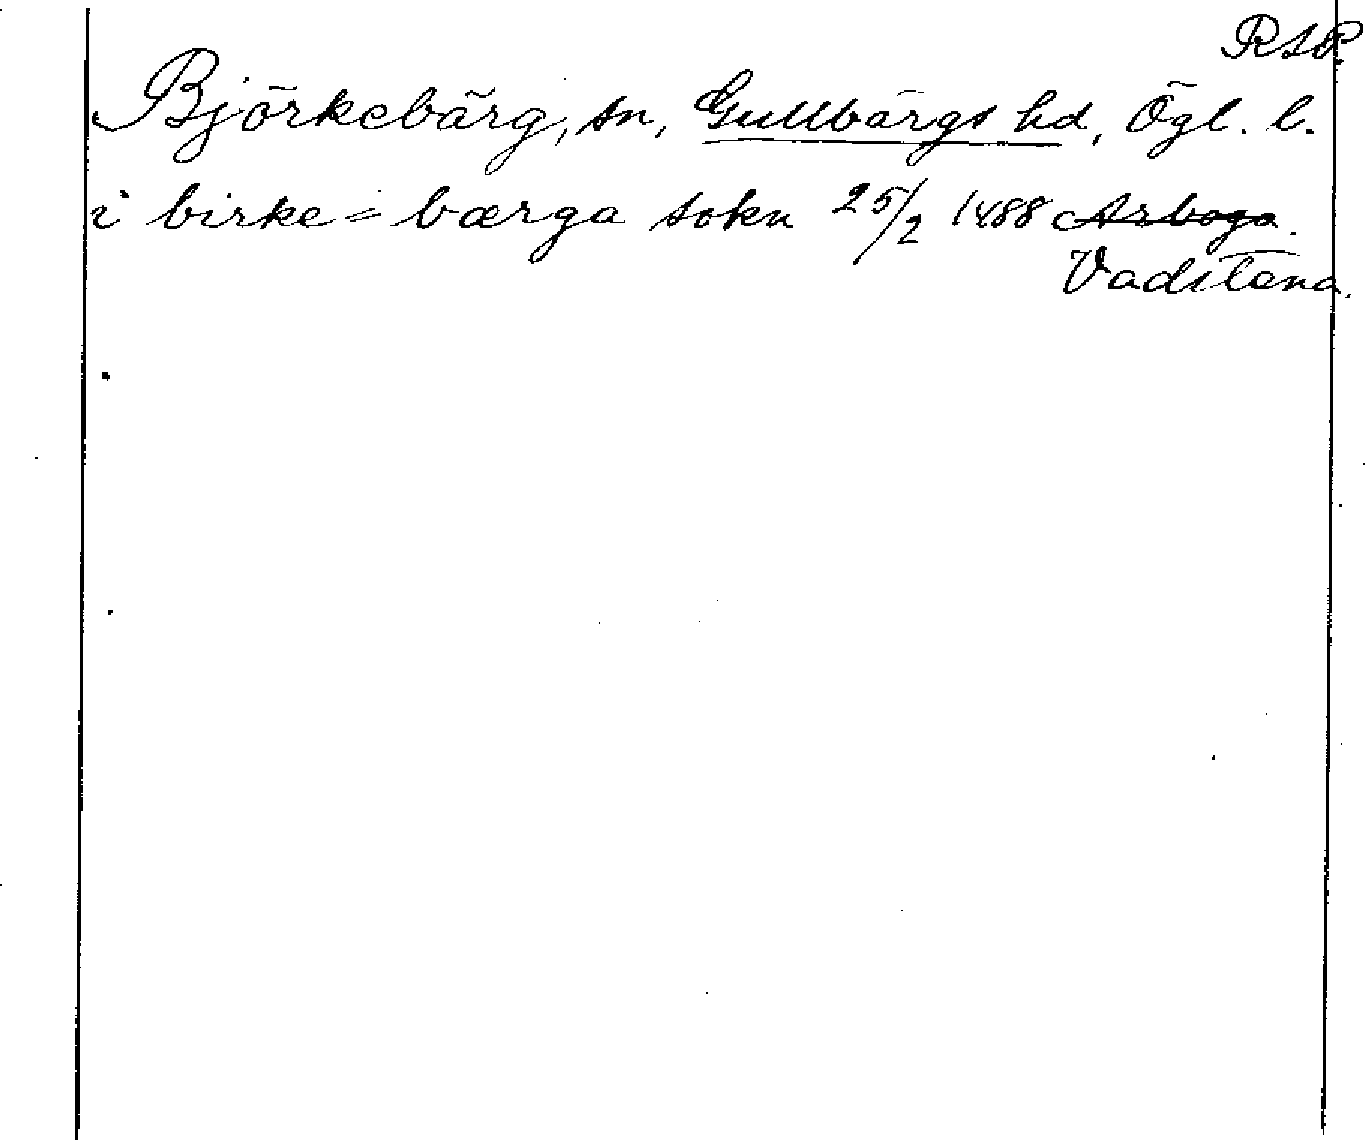 RAP.
Björkebärg, sn, Gullbärgs hd, Ögl. l.
i birke=bærga sokn 25/2 1488 Arboga.
Vadstena.